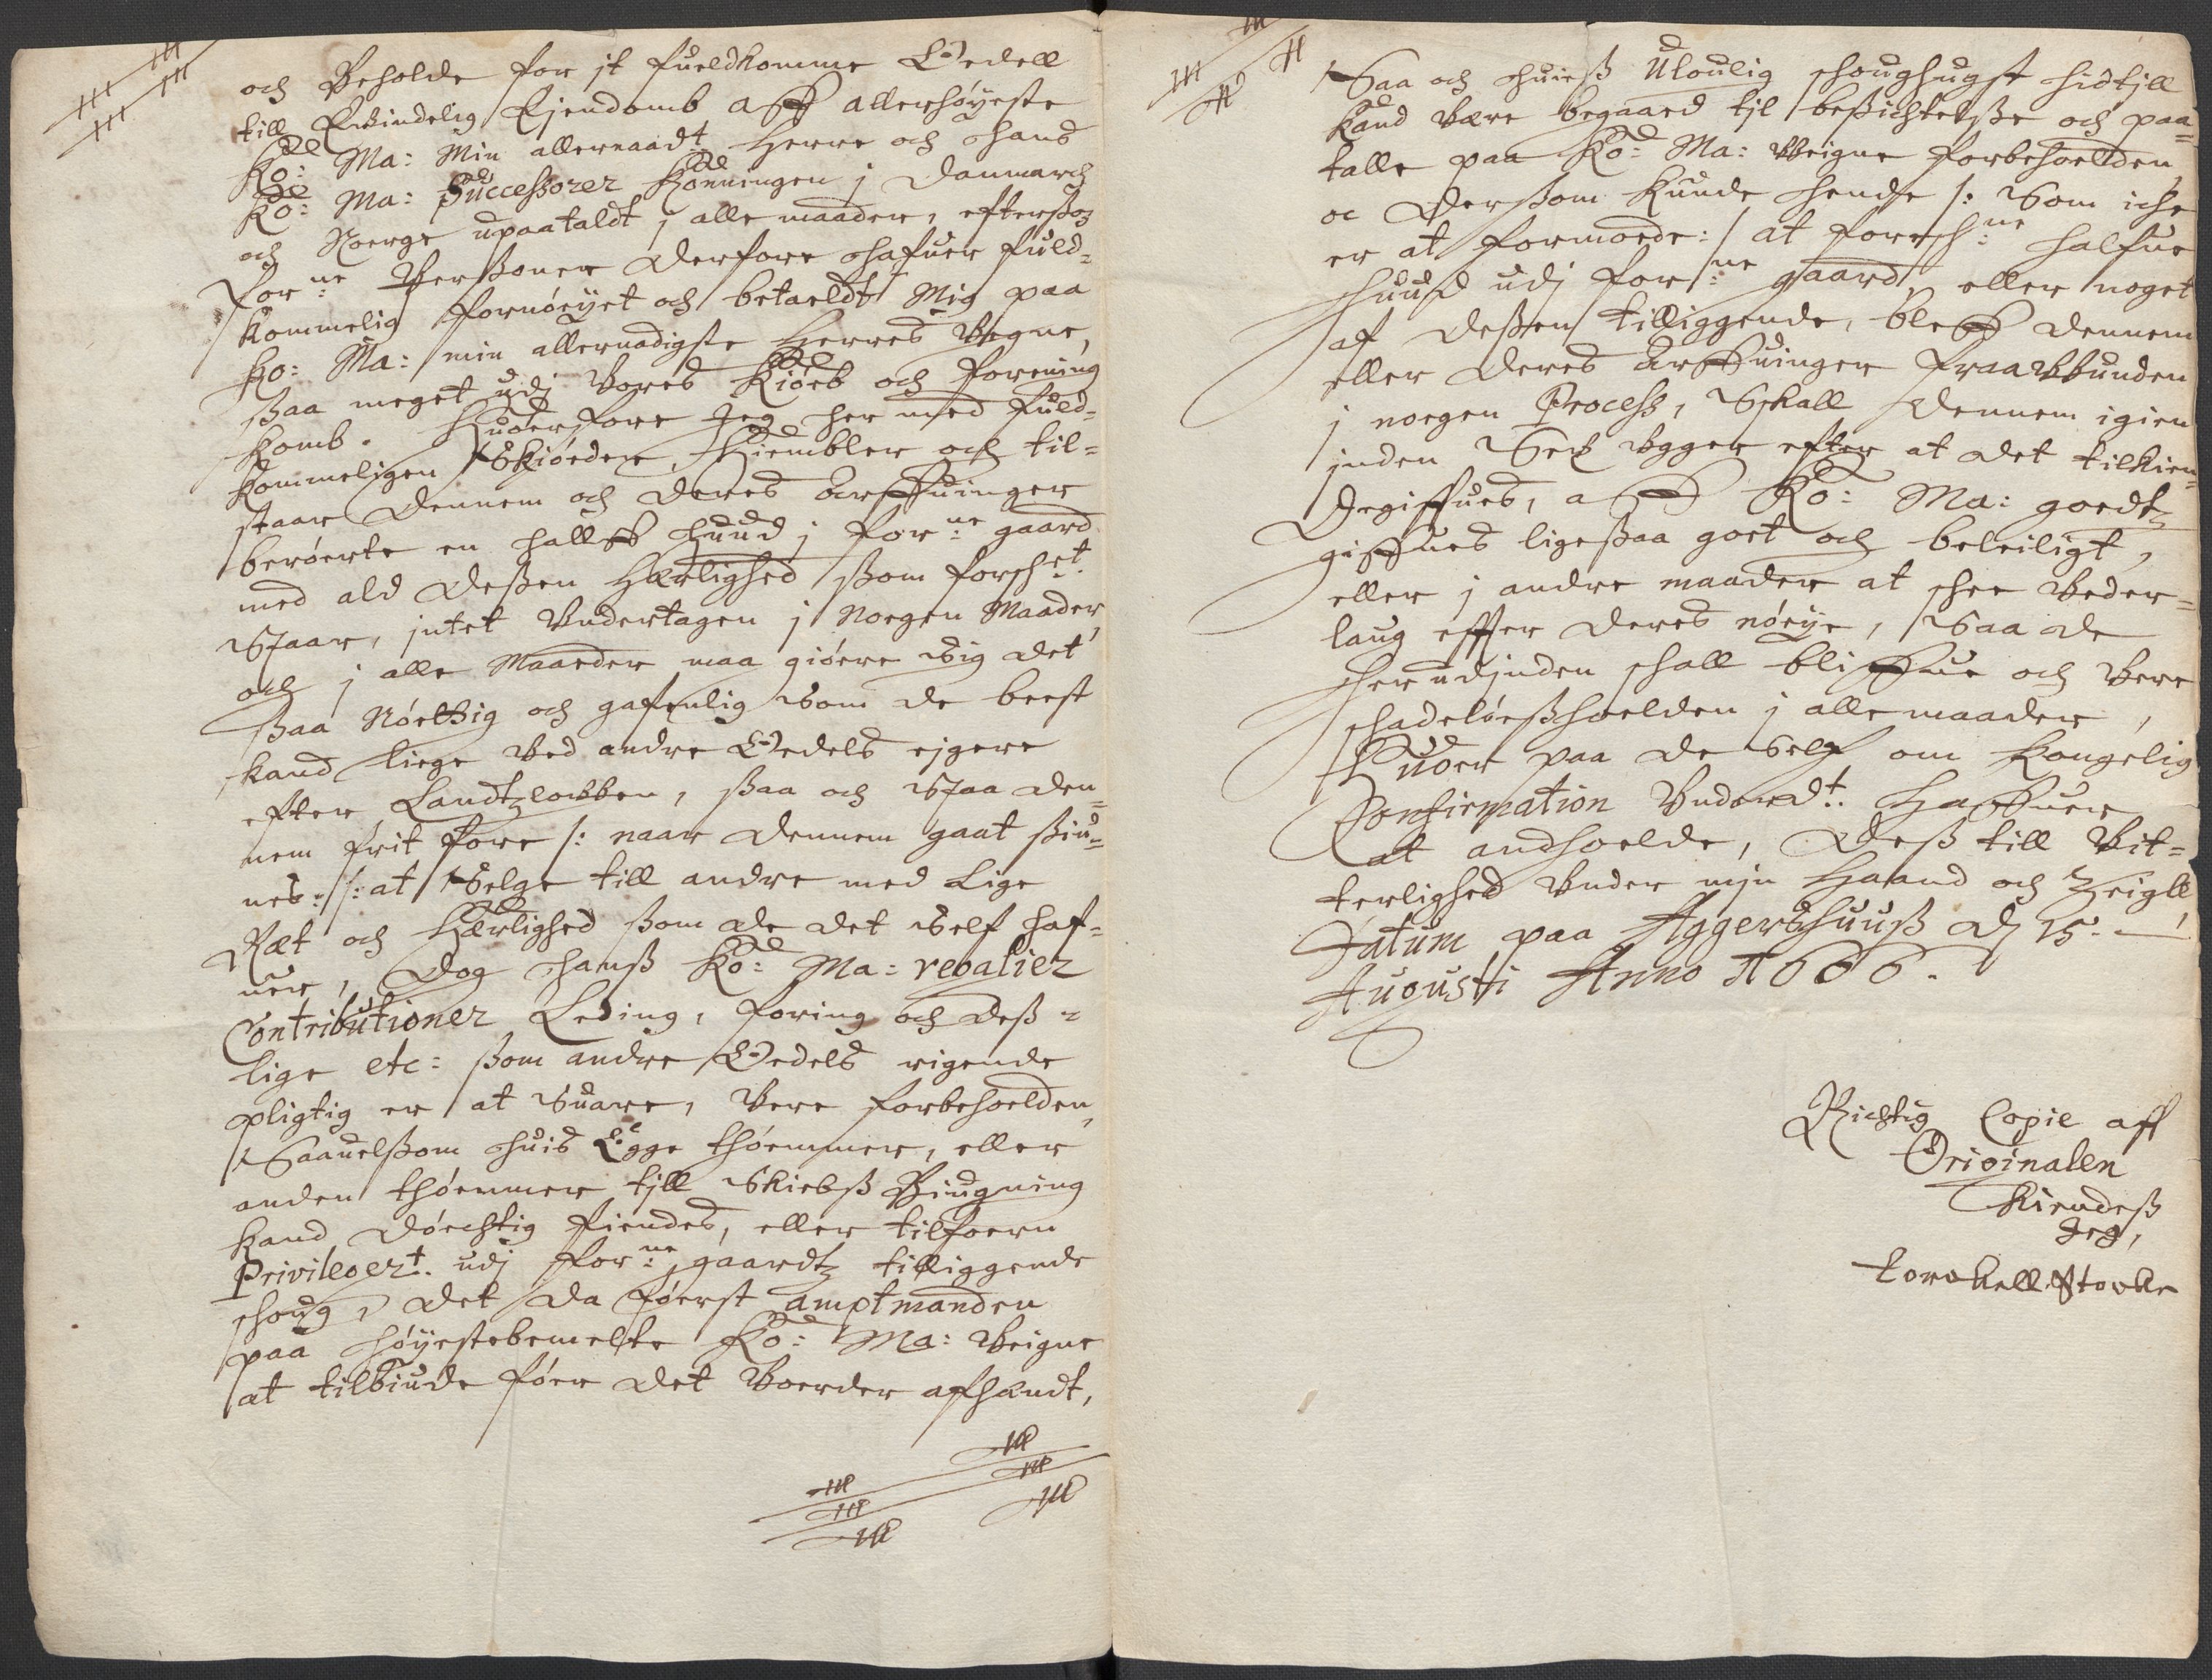 och Beholde for it fueldkomme Oedell
till Evindelig Eiendomb aff allerhøyeste
Ko: Ma: Min allernaadt Herre och Hans
Ko: Ma: Successorer Konningen j Danmarch
och Noerge upaataldt j alle maader, eftersom
for:ne Persohner derfore hafuer fuld=
kommelig fornøeyet och betaeldt Mig paa
Ko: Ma: min allernadigste Herres Vegne,
ßaa meget udj Vores Kiøeb och forening
komb. Huorfore Jeg her med fuld=
kommeligen Skiøeder, Hiembler och til=
staar Dennem och deres arffuinger
berøerte en halff Huud j for:ne gaard
med ald deßen Herlighed ßom forsch:et
Staar, jntet Undertagen j Noegen Maader,
och j alle Maader maa giøere Sig det
ßaa Nøettig och gafenlig Som de beest
kand liege Ved andre Oedels ejgere
efter Landtzlowen, ßaa och Staa den=
nem frit fore /: naar dennem gaat ßiu=
nes:/: at Selge till andre med Lige
Ræt och Herlighed ßom de det Self haf=
uer, Dog Hanß Ko: Ma: regalier
Contributioner Leding, foring och deß=
lige etc: ßom andre Oedels eigende
pligtig er at Suare, Vere forbeholden,
Saauelßom Huis Egge thømmer, eller
anden thømmer till Skiebß Biugning
kand døechtig findes, eller tilforn
Privilegert. udj for:ne gaardtz tilliggende
schoug, det da føerst amptmanden
paa høyestebemelte Ko: Ma: Veigne
at tilbiude føer det Voerder afhændt,
Saa och Huieß Ulouglig schoughugst hidtill
kand Vere begaaed til beßichtelße och paa=
talle paa Ko: Ma: Veigne forbeholden,
oc Derßom kunde hende /: Som iche
er at formoede:/ at forsch:ne halfue
Huud udj for:ne gaard, eller noget
af deßen tilliggende, bleff dennem
eller deres arffuinger fraawunden
j noegen Process, Schall dennem igien
inden Sex Vgger efter at det tilkien=
degiffues, aff Ko: Ma: goedtz
giffues ligeßaa goet och beleiligt,
eller j andre maader at schee Veder=
laug effter deres nøeye, Saa de
herudjnden schall bliffue och Vere
schadeløeßhoelden j alle maader,
Huoer paa de Self om kongelig
Confirmation Underd:t Haffuer
at andhoelde, Deß till Vit=
terlighed Under mjn Haand och Zeigll
Datum paa Aggershuuß dj 15:
Augusti Anno 1666.
Richtig Copie aff
Originalen
Kiendeß
Jeg,